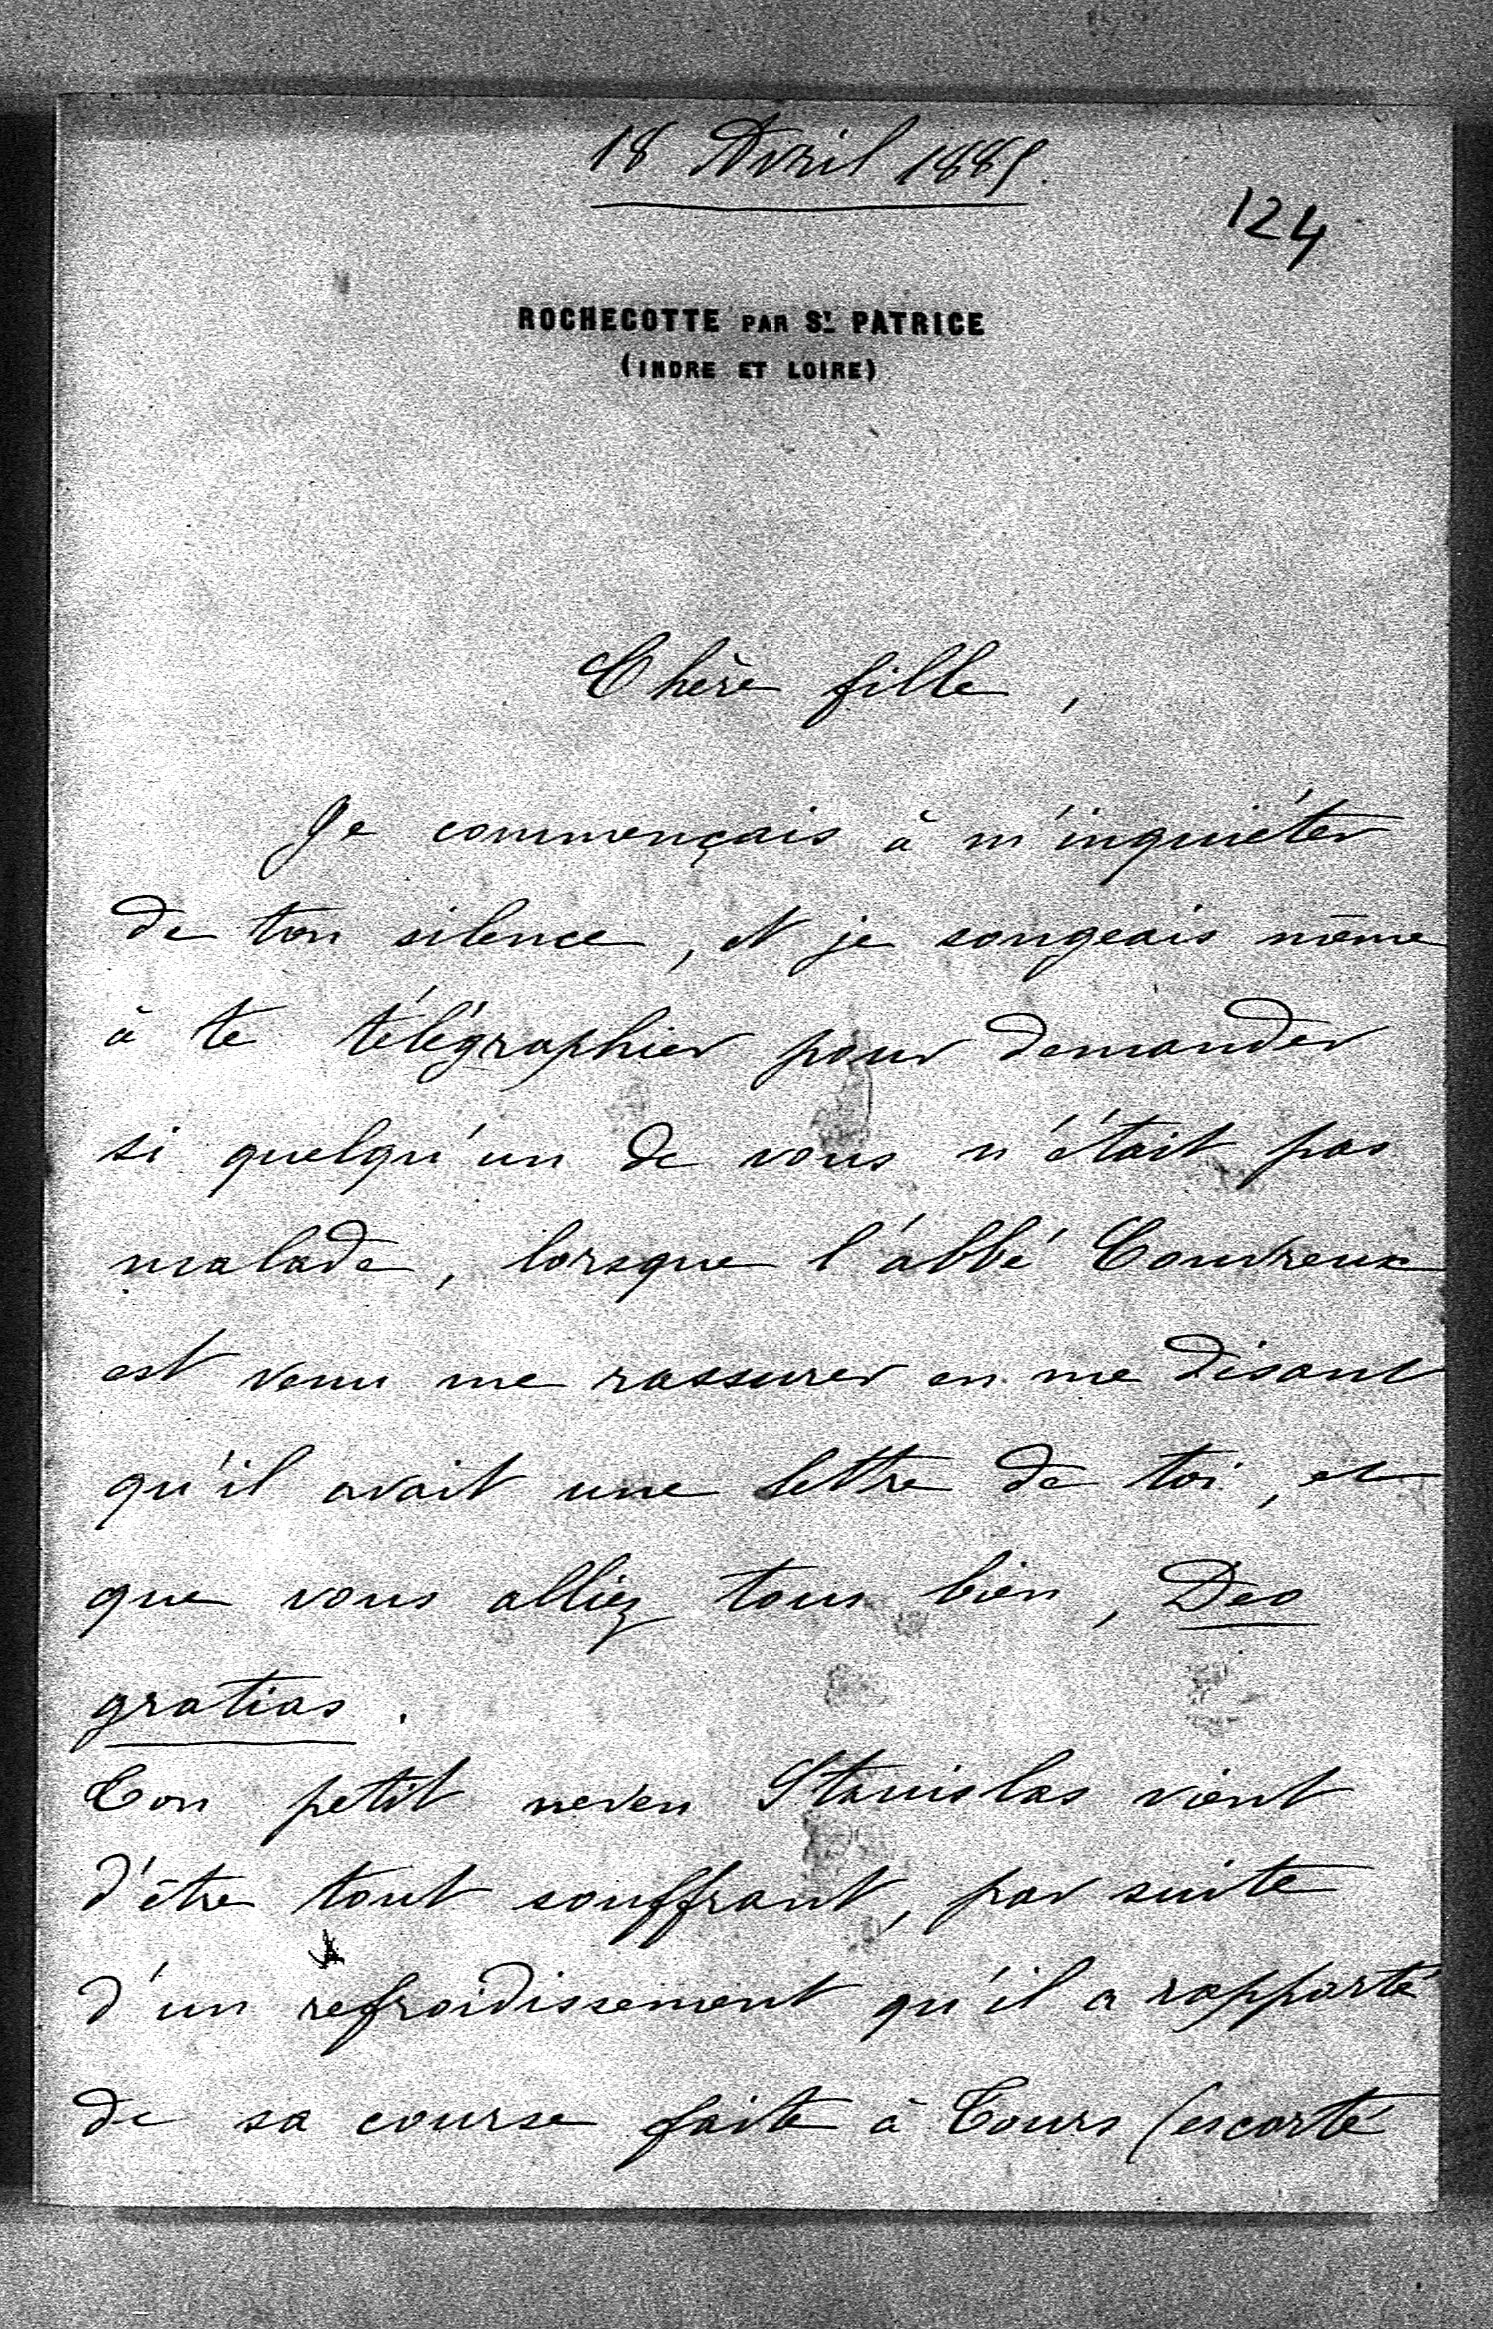 18 Avril 1885.
124
ROCHECOTTE PAR ST. PATRICE
(INDRE ET LOIRE)
Chère fille,
Je commençais à m'inquiéter
de ton silence, et je songeais même
à te télégraphier pour demander
si quelqu'un de vous n'était pas
malade, lorsque l'abbé Couvreux
est venu me rassurer en me disant
qu'il avait une lettre de toi, et
que vous alliez tous bien, Deo
gratias.
Ton petit neveu Stanislas vient
d'être tout souffrant, par suite
d'un refroidissement qu'il a rapporté
de sa course faite à Tours (escorté